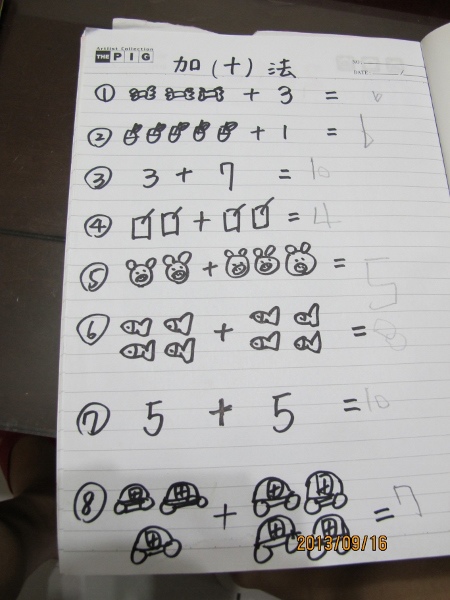 Artist Collection
THE PIG
NO.
DATE / /
加(十)法
① + 3 = 6
② + 1 = 6
③ 3 + 7 = 10
④ + = 4
⑤ + = 5
⑥ + = 8
⑦ 5 + 5 = 10
⑧ + = 7
2013/09/16